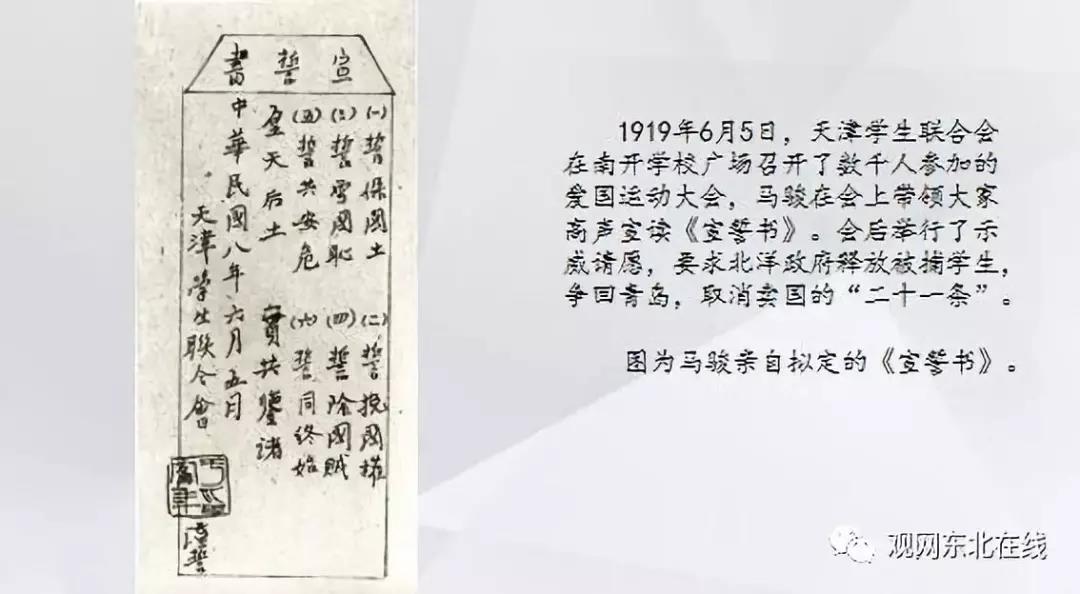 宣誓書
(一)誓保國土 (二)誓挽國權
(三)誓雪國恥 (四)誓除國賊
(五)誓共安危 (六)誓同終始
皇天后土 實共鑒諸
中華民國八年六月五日
天津学生聯合會
謹誓
1919年6月5日，天津学生联合会
在南开学校广场召开了数千人参加的
爱国运动大会，马骏在会上带领大家
高声宣读《宣誓书》。会后举行了示
威请愿，要求北洋政府释放被捕学生，
争回青岛，取消卖国的“二十一条”。
图为马骏亲自拟定的《宣誓书》。
观网东北在线